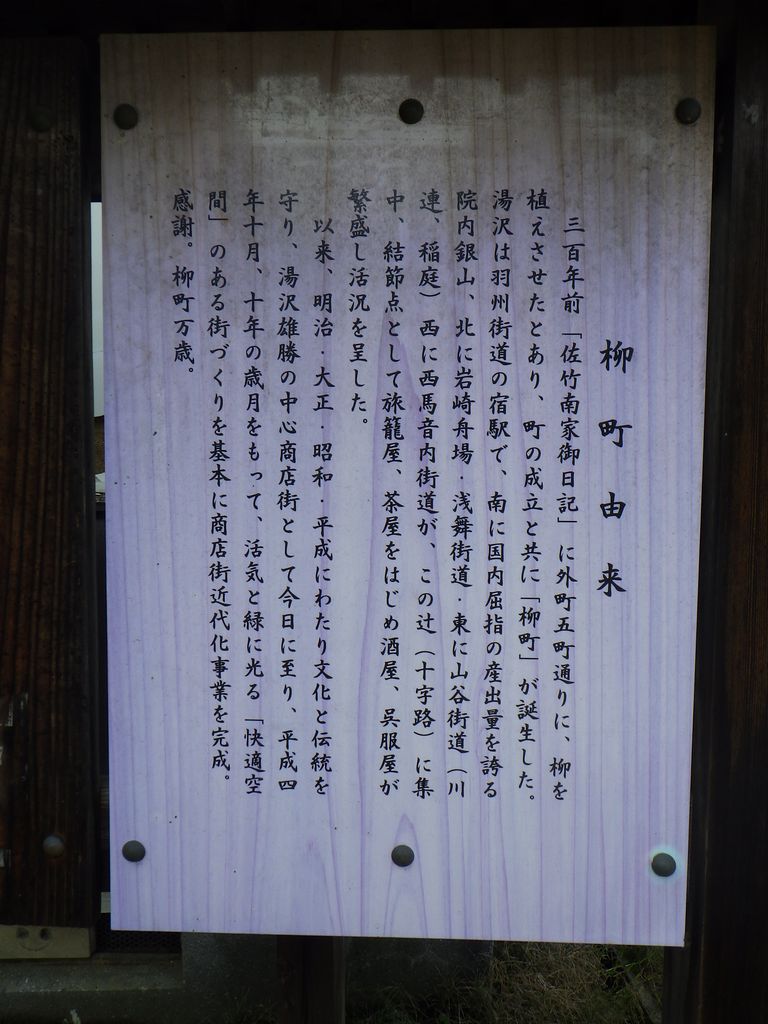 柳町由来
三百年前「佐竹南家御日記」に外町五町通りに、柳を
植えさせたとあり、町の成立と共に「柳町」が誕生した。
湯沢は羽州街道の宿駅で、南に国内屈指の産出量を誇る
院内銀山、北に岩崎舟場・浅舞街道・東に山谷街道（川
連、稲庭）西に西馬音内街道が、この辻（十字路）に集
中、結節点として旅籠屋、茶屋をはじめ酒屋、呉服屋が
繁盛し活況を呈した。
以来、明治・大正・昭和・平成にわたり文化と伝統を
守り、湯沢雄勝の中心商店街として今日に至り、平成四
年十月、十年の歳月をもって、活気と緑に光る「快適空
間」のある街づくりを基本に商店街近代化事業を完成。
感謝。柳町万歳。